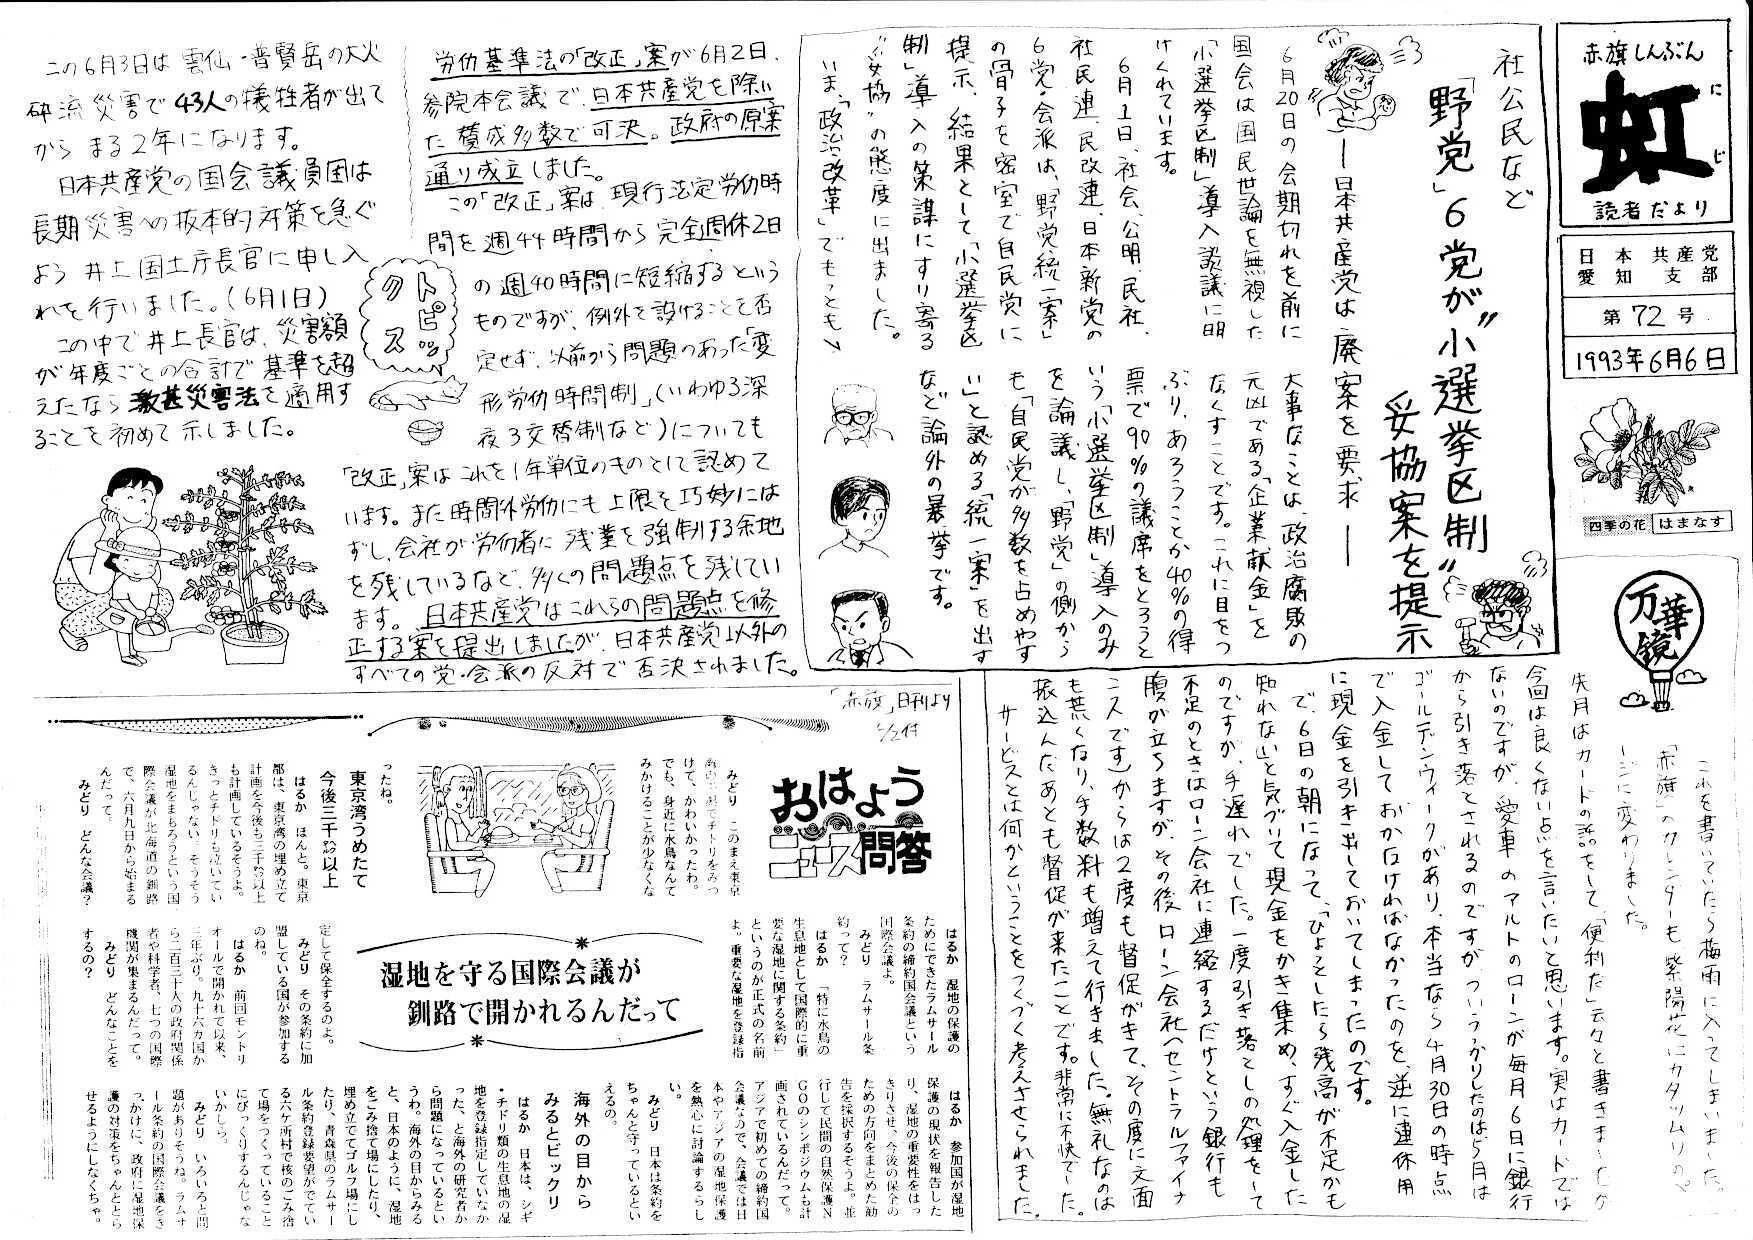 赤旗しんぶん
虹
にじ
読者だより
日本共産党
愛知支部
第72号
1993年6月6日
四季の花 はまなす
社公民など
「野党」6党が〝小選挙区制〟
妥協案を提示
―日本共産党は廃案を要求―
6月20日の会期切れを前に
国会は国民世論を無視した
「小選挙区制」導入談議に明
けくれています。
6月1日、社会、公明、民社、
社民連、民改連、日本新党の
6党・会派は、「野党統一案」
の骨子を密室で自民党に
提示、結果として「小選挙区
制」導入の策謀にすり寄る
〝妥協〟の態度に出ました。
いま、「政治改革」でもっとも
大事なことは、政治腐敗の
元凶である「企業献金」を
なくすことです。これに目をつ
ぶり、あろうことか40%の得
票で90%の議席をとろうと
いう「小選挙区制」導入のみ
を論議し、「野党」の側から
も「自民党が多数を占めやす
い」と認める「統一案」を出す
など論外の暴挙です。
トピックス
労仂基準法の「改正」案が6月2日、
参院本会議で、日本共産党を除い
た賛成多数で可決。政府の原案
通り成立しました。
この「改正」案は、現行法定労仂時
間を週44時間から完全週休2日
の週40時間に短縮するという
ものですが、例外を設けることを否
定せず、以前から問題のあった「変
形労仂時間制」(いわゆる深
夜3交替制など)についても
「改正」案はこれを1年単位のものとして認めて
います。また時間外労仂にも上限を巧妙には
ずし、会社が労仂者に残業を強制する余地
を残しているなど、多くの問題点を残してい
ます。日本共産党はこれらの問題点を修
正する案を提出しましたが、日本共産党以外の
すべての党・会派の反対で否決されました。
この6月3日は雲仙・普賢岳の大火
砕流災害で43人の犠牲者が出て
からまる2年になります。
日本共産党の国会議員団は
長期災害への抜本的対策を急ぐ
よう井上国土庁長官に申し入
れを行いました。(6月1日)
この中で井上長官は、災害額
が年度ごとの合計で基準を超
えたなら激甚災害法を適用す
ることを初めて示しました。
万華鏡
これを書いていたら梅雨に入ってしまいました。
「赤旗」のカレンダーも紫陽花にカタツムリのペ
ージに変わりました。
先月はカードの話をして、「便利だ」云々と書きましたが
今回は良くない点を言いたいと思います。実はカードでは
ないのですが、愛車のアルトのローンが毎月6日に銀行
から引き落とされるのですが、ついうっかりしたのは5月は
ゴールデンウィークがあり、本当なら4月30日の時点
で入金しておかなければなかったのを、逆に連休用
に現金を引き出しておいてしまったのです。
で、6日の朝になって、「ひょっとしたら残高が不足かも
知れない」と気づいて現金をかき集め、すぐ入金した
のですが、手遅れでした。一度引き落としの処理をして
不足のときはローン会社に連絡するだけという銀行も
腹が立ちますが、その後ローン会社(セントラルファイナ
ンスです)からは2度も督促がきて、その度に文面
も荒くなり、手数料も増えて行きました。無礼なのは
振込んだあとも督促が来たことです。非常に不快でした。
サービスとは何かということをつくづく考えさせられました。
「赤旗」日刊より
6/2付
おはよう
ニュース問答
湿地を守る国際会議が
釧路で開かれるんだって
みどり このまえ東京
湾の干潟でチドリをみつ
けて、かわいかったわ。
でも、身近に水鳥なんて
みかけることが少なくな
ったね。
東京湾うめたて
今後三千㌶以上
はるか ほんと。東京
都は、東京湾の埋め立て
計画を今後も三千㌶以上
も計画しているそうよ。
きっとチドリも泣いてい
るんじゃない。そうそう
湿地をまもろうという国
際会議が北海道の釧路
で、六月九日から始まる
んだって。
みどり どんな会議?
はるか 湿地の保護の
ためにできたラムサール
条約の締約国会議という
国際会議よ。
みどり ラムサール条
約って?
はるか 「特に水鳥の
生息地として国際的に重
要な湿地に関する条約」
というのが正式の名前
よ。重要な湿地を登録指
定して保全するのよ。
みどり その条約に加
盟している国が参加する
のね。
はるか 前回モントリ
オールで開かれて以来、
三年ぶり。九十六カ国か
ら二百三十人の政府関係
者や科学者、七つの国際
機関が集まるんだって。
みどり どんなことを
するの?
はるか 参加国が湿地
保護の現状を報告した
り、湿地の重要性をはっ
きりさせ、今後の保全の
ための方向をまとめた勧
告を採択するそうよ。並
行して民間の自然保護N
GOのシンポジウムも計
画されているんだって。
アジアで初めての締約国
会議なので、会議では日
本やアジアの湿地保護
を熱心に討論するらし
い。
みどり 日本は条約を
ちゃんと守っているとい
えるの。
海外の目から
みるとビックリ
はるか 日本は、シギ
・チドリ類の生息地の湿
地を登録指定していなか
った、と海外の研究者か
ら問題になっているとい
うわ。海外の目からみる
と、日本のように、湿地
をごみ捨て場にしたり、
埋め立ててゴルフ場にし
たり、青森県のラムサー
ル条約登録要望がでてい
る六ケ所村で核のごみ捨
て場をつくっていること
にびっくりするんじゃな
いかしら。
みどり いろいろと問
題がありそうね。ラムサ
ール条約の国際会議をき
っかけに、政府に湿地保
護の対策をちゃんととら
せるようにしなくちゃ。